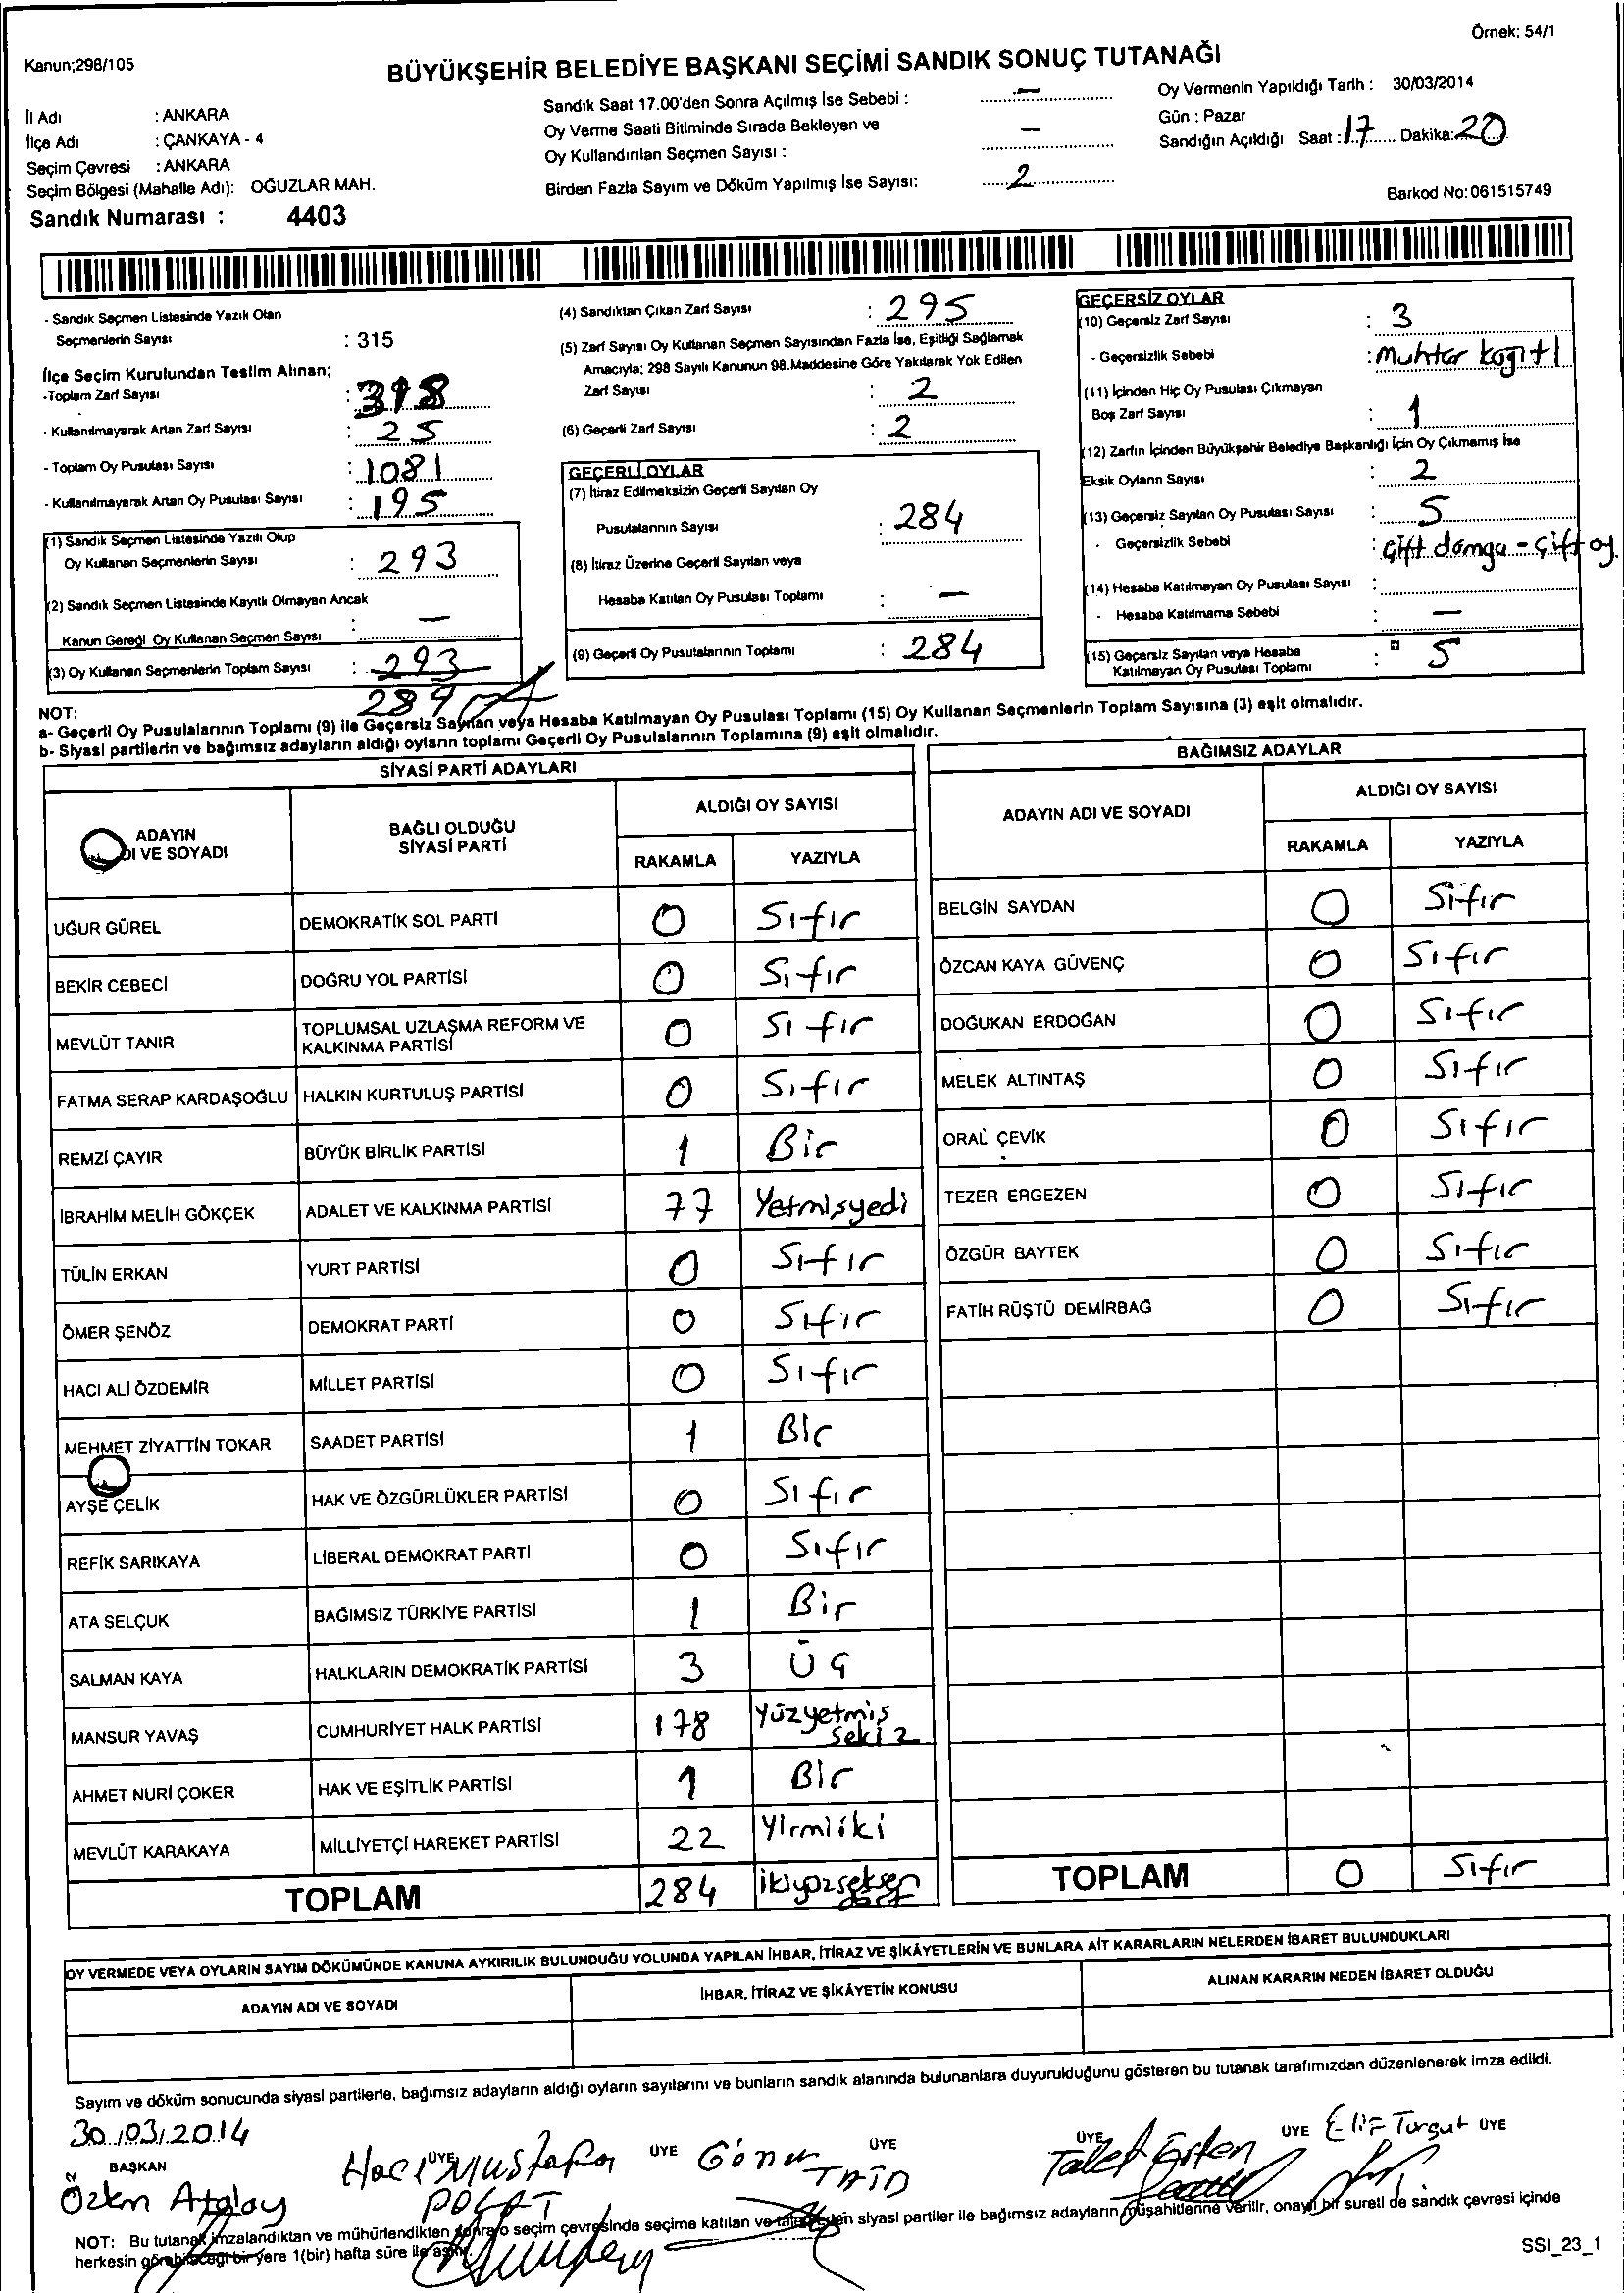 Örnek: 54/1
Kanun;298/105
BÜYÜKŞEHİR BELEDİYE BAŞKANI SEÇİMİ SANDIK SONUÇ TUTANAĞI
İl Adı : ANKARA
İlçe Adı : ÇANKAYA - 4
Seçim Çevresi : ANKARA
Seçim Bölgesi (Mahalle Adı): OĞUZLAR MAH.
Sandık Numarası : 4403
Sandık Saat 17.00'den Sonra Açılmış İse Sebebi : —
Oy Verme Saati Bitiminde Sırada Bekleyen ve
Oy Kullandırılan Seçmen Sayısı : —
Birden Fazla Sayım ve Döküm Yapılmış İse Sayısı: 2
Oy Vermenin Yapıldığı Tarih : 30/03/2014
Gün : Pazar
Sandığın Açıldığı Saat : 17 Dakika: 20
Barkod No: 061515749
- Sandık Seçmen Listesinde Yazılı Olan
Seçmenlerin Sayısı : 315
İlçe Seçim Kurulundan Teslim Alınan;
-Toplam Zarf Sayısı : 318
- Kullanılmayarak Artan Zarf Sayısı : 25
- Toplam Oy Pusulası Sayısı : 1081
- Kullanılmayarak Artan Oy Pusulası Sayısı : 195
(1) Sandık Seçmen Listesinde Yazılı Olup
Oy Kullanan Seçmenlerin Sayısı : 293
(2) Sandık Seçmen Listesinde Kayıtlı Olmayan Ancak
Kanun Gereği Oy Kullanan Seçmen Sayısı : —
(3) Oy Kullanan Seçmenlerin Toplam Sayısı : 293
289
(4) Sandıktan Çıkan Zarf Sayısı : 295
(5) Zarf Sayısı Oy Kullanan Seçmen Sayısından Fazla İse, Eşitliği Sağlamak
Amacıyla; 298 Sayılı Kanunun 98.Maddesine Göre Yakılarak Yok Edilen
Zarf Sayısı : 2
(6) Geçerli Zarf Sayısı : 2
GEÇERLİ OYLAR
(7) İtiraz Edilmeksizin Geçerli Sayılan Oy
Pusulalarının Sayısı : 284
(8) İtiraz Üzerine Geçerli Sayılan veya
Hesaba Katılan Oy Pusulası Toplamı : —
(9) Geçerli Oy Pusulalarının Toplamı : 284
GEÇERSİZ OYLAR
(10) Geçersiz Zarf Sayısı : 3
- Geçersizlik Sebebi : Muhtar kağıtı
(11) İçinden Hiç Oy Pusulası Çıkmayan
Boş Zarf Sayısı : 1
(12) Zarfın İçinden Büyükşehir Belediye Başkanlığı İçin Oy Çıkmamış İse
Eksik Oyların Sayısı : 2
(13) Geçersiz Sayılan Oy Pusulası Sayısı : 5
- Geçersizlik Sebebi : Çift damga - Çift oy
(14) Hesaba Katılmayan Oy Pusulası Sayısı :
- Hesaba Katılmama Sebebi : —
(15) Geçersiz Sayılan veya Hesaba
Katılmayan Oy Pusulası Toplamı : 5
NOT:
a- Geçerli Oy Pusulalarının Toplamı (9) ile Geçersiz Sayılan veya Hesaba Katılmayan Oy Pusulası Toplamı (15) Oy Kullanan Seçmenlerin Toplam Sayısına (3) eşit olmalıdır.
b- Siyasi partilerin ve bağımsız adayların aldığı oyların toplamı Geçerli Oy Pusulalarının Toplamına (9) eşit olmalıdır.
SİYASİ PARTİ ADAYLARI
ADAYIN
DI VE SOYADI
BAĞLI OLDUĞU
SİYASİ PARTİ
ALDIĞI OY SAYISI
RAKAMLA YAZIYLA
UĞUR GÜREL DEMOKRATİK SOL PARTİ 0 Sıfır
BEKİR CEBECİ DOĞRU YOL PARTİSİ 0 Sıfır
MEVLÜT TANIR TOPLUMSAL UZLAŞMA REFORM VE KALKINMA PARTİSİ 0 Sıfır
FATMA SERAP KARDAŞOĞLU HALKIN KURTULUŞ PARTİSİ 0 Sıfır
REMZİ ÇAYIR BÜYÜK BİRLİK PARTİSİ 1 Bir
İBRAHİM MELİH GÖKÇEK ADALET VE KALKINMA PARTİSİ 77 Yetmişyedi
TÜLİN ERKAN YURT PARTİSİ 0 Sıfır
ÖMER ŞENÖZ DEMOKRAT PARTİ 0 Sıfır
HACI ALİ ÖZDEMİR MİLLET PARTİSİ 0 Sıfır
MEHMET ZİYATTİN TOKAR SAADET PARTİSİ 1 Bir
AYŞE ÇELİK HAK VE ÖZGÜRLÜKLER PARTİSİ 0 Sıfır
REFİK SARIKAYA LİBERAL DEMOKRAT PARTİ 0 Sıfır
ATA SELÇUK BAĞIMSIZ TÜRKİYE PARTİSİ 1 Bir
SALMAN KAYA HALKLARIN DEMOKRATİK PARTİSİ 3 Üç
MANSUR YAVAŞ CUMHURİYET HALK PARTİSİ 178 Yüzyetmiş sekiz
AHMET NURİ ÇOKER HAK VE EŞİTLİK PARTİSİ 1 Bir
MEVLÜT KARAKAYA MİLLİYETÇİ HAREKET PARTİSİ 22 Yirmiiki
TOPLAM 284 ikiyüzseksen dört
BAĞIMSIZ ADAYLAR
ADAYIN ADI VE SOYADI
ALDIĞI OY SAYISI
RAKAMLA YAZIYLA
BELGİN SAYDAN 0 Sıfır
ÖZCAN KAYA GÜVENÇ 0 Sıfır
DOĞUKAN ERDOĞAN 0 Sıfır
MELEK ALTINTAŞ 0 Sıfır
ORAL ÇEVİK 0 Sıfır
TEZER ERGEZEN 0 Sıfır
ÖZGÜR BAYTEK 0 Sıfır
FATİH RÜŞTÜ DEMİRBAĞ 0 Sıfır
TOPLAM 0 Sıfır
OY VERMEDE VEYA OYLARIN SAYIM DÖKÜMÜNDE KANUNA AYKIRILIK BULUNDUĞU YOLUNDA YAPILAN İHBAR, İTİRAZ VE ŞİKÂYETLERİN VE BUNLARA AİT KARARLARIN NELERDEN İBARET BULUNDUKLARI
ADAYIN ADI VE SOYADI İHBAR, İTİRAZ VE ŞİKÂYETİN KONUSU ALINAN KARARIN NEDEN İBARET OLDUĞU
Sayım ve döküm sonucunda siyasi partilerle, bağımsız adayların aldığı oyların sayılarını ve bunların sandık alanında bulunanlara duyurulduğunu gösteren bu tutanak tarafımızdan düzenlenerek imza edildi.
30/03/2014
BAŞKAN ÜYE ÜYE ÜYE ÜYE ÜYE ÜYE
Özkn Atalay
Hacı Mustafa
POLAT
Elif Turgut
NOT: Bu tutanak imzalandıktan ve mühürlendikten sonra o seçim çevresinde seçime katılan ve siyasi partiler ile bağımsız adayların müşahitlerine verilir, onaylı bir sureti de sandık çevresi içinde
herkesin görebileceği bir yere 1(bir) hafta süre ile asılır.
SSI_23_1